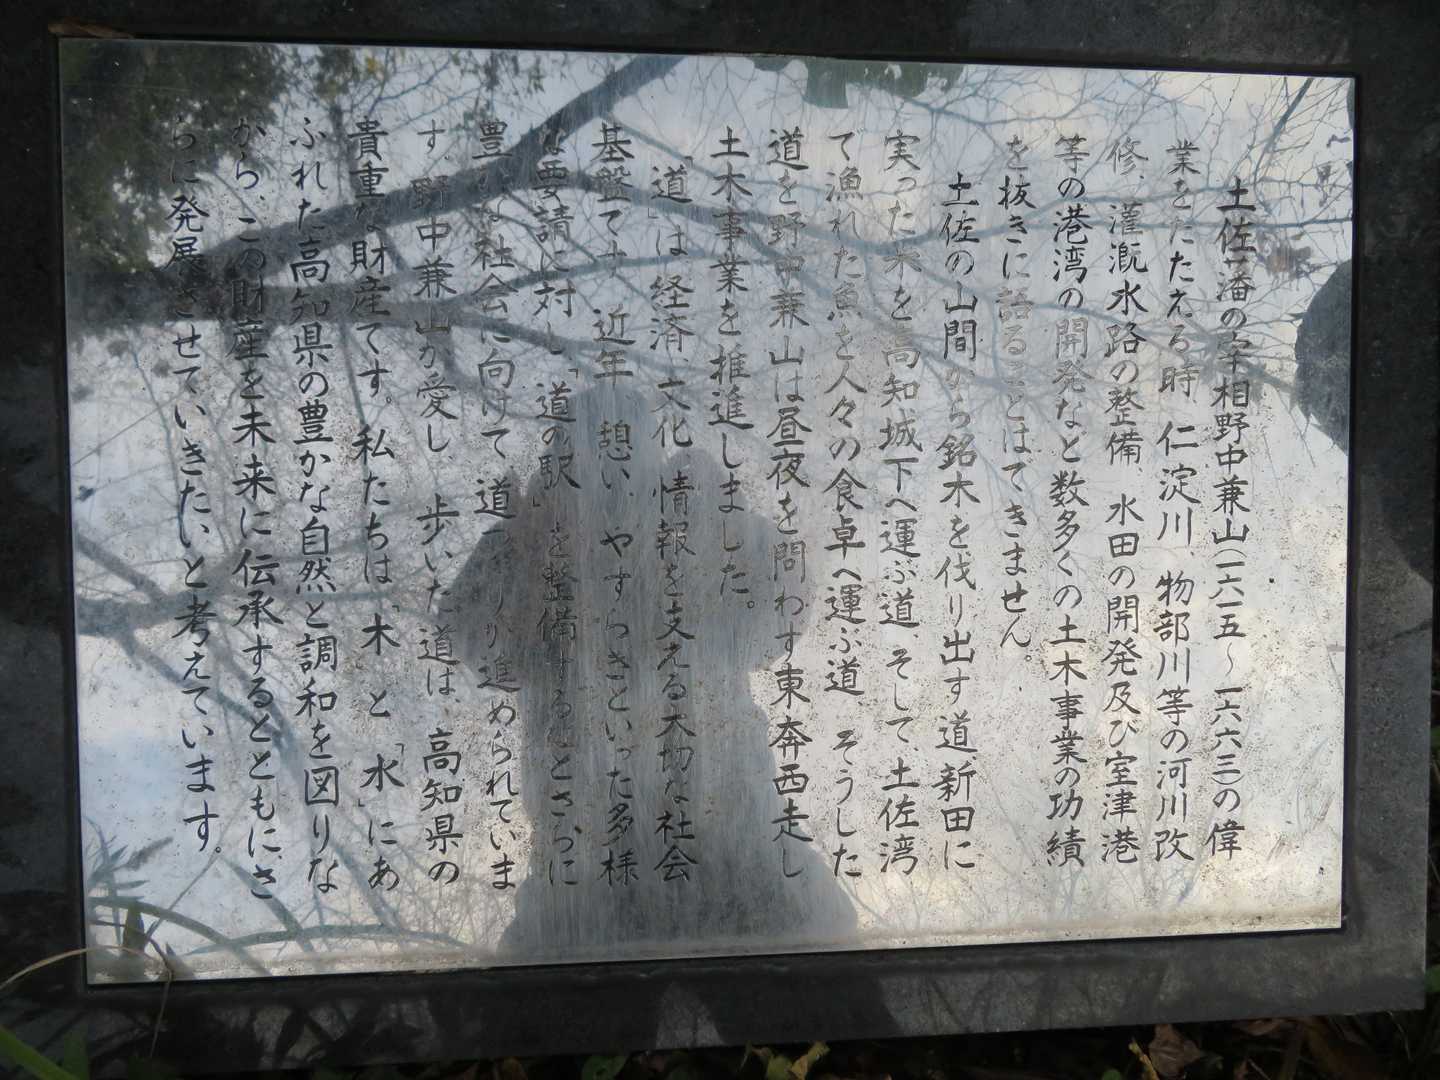 土佐藩の宰相野中兼山(一六一五〜一六六三)の偉
業をたたえる時、仁淀川、物部川等の河川改
修、灌漑水路の整備、水田の開発及び室津港
等の港湾の開発など数多くの土木事業の功績
を抜きに語ることはできません。
土佐の山間から銘木を伐り出す道、新田に
実った米を高知城下へ運ぶ道、そして、土佐湾
で漁れた魚を人々の食卓へ運ぶ道、そうした
道を野中兼山は昼夜を問わず東奔西走し
土木事業を推進しました。
「道」は経済、文化、情報を支える大切な社会
基盤です。近年、憩い、やすらぎといった多様
な要請に対し「道の駅」を整備するなどさらに
豊かな社会に向けて道づくりが進められていま
す。野中兼山が愛し、歩いた道は、高知県の
貴重な財産です。私たちは「木」と「水」にあ
ふれた高知県の豊かな自然と調和を図りな
がら、この財産を未来に伝承するとともに、さ
らに発展させていきたいと考えています。